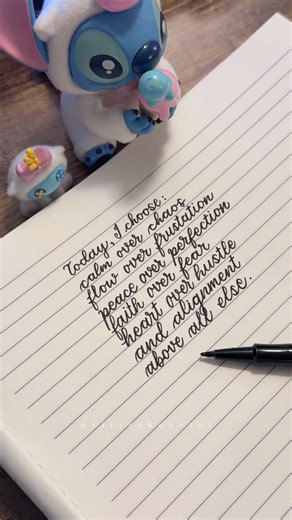 Today, I choose:
calm over chaos
flow over frustation
peace over perfection
faith over fear
heart over hustle
and alignment
above all else.